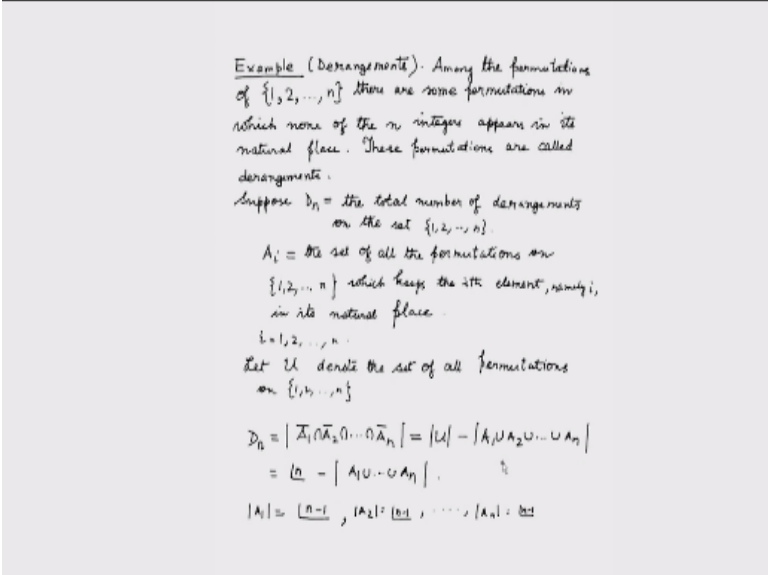 Example (Derangements). Among the permutations
of {1, 2, ..., n} there are some permutations in
which none of the n integers appears in its
natural place. These permutations are called
derangements.
Suppose Dₙ = the total number of derangements
on the set {1, 2, .., n}.
Aᵢ = the set of all the permutations on
{1, 2, ... n} which keeps the ith element, namely i,
in its natural place.
i = 1, 2, ..., n.
Let U denote the set of all permutations
on {1, 2, ..., n}
Dₙ = | A̅₁ ∩ A̅₂ ∩ ... ∩ A̅ₙ | = |U| - | A₁ ∪ A₂ ∪ ... ∪ Aₙ |
= ⌊n - | A₁ ∪ ... ∪ Aₙ |.
|A₁| = ⌊n-1 , |A₂| = ⌊n-1 , ....., |Aₙ| = ⌊n-1